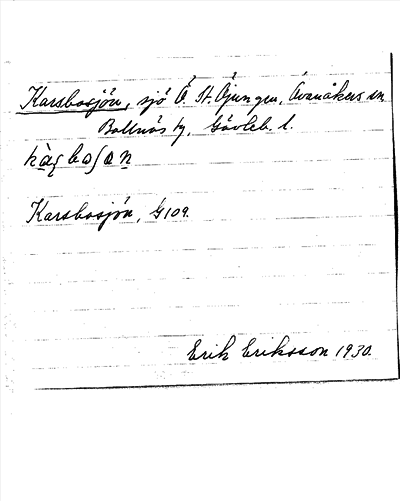 Karsbosjön, sjö Ö. St. Öjungen, Svanåkers sn,
Bollnäs tg, Gävleb. l.
Karsbosjön, G 109.
Erik Eriksson 1930.